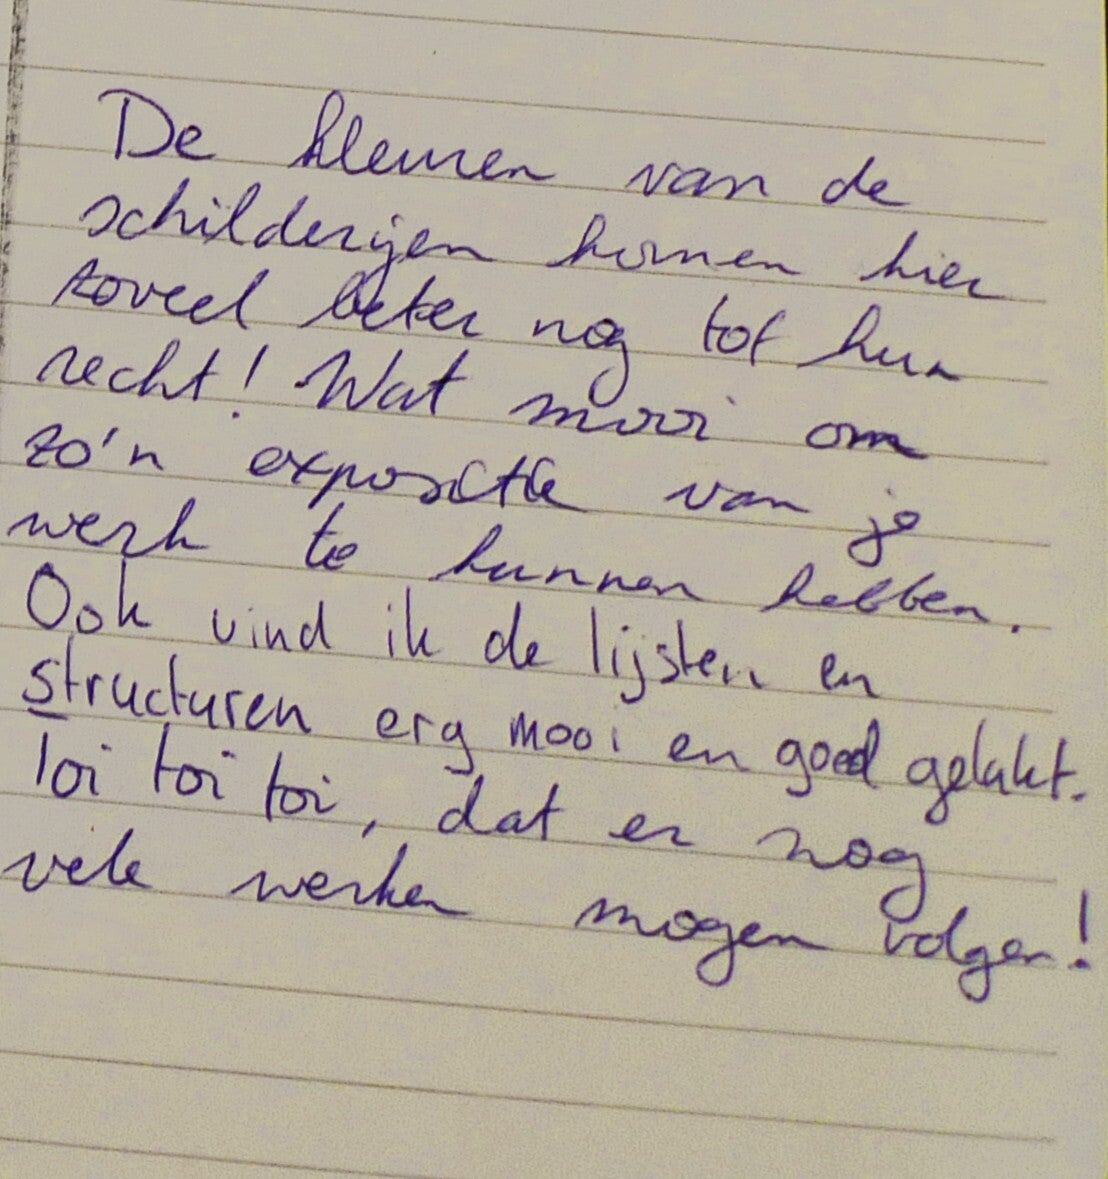 De kleuren van de
schilderijen komen hier
zoveel beter nog tot hun
recht! Wat mooi om
zo'n expositie van je
werk te kunnen hebben.
Ook vind ik de lijsten en
structuren erg mooi en goed gelukt.
Toi toi toi, dat er nog
vele werken mogen volgen!